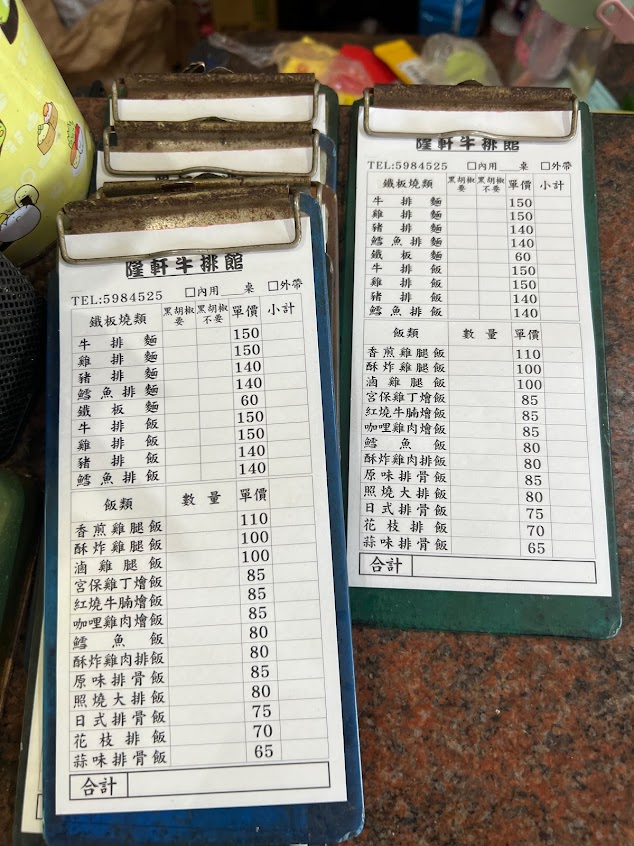 隆軒牛排館
TEL:5984525 □內用 桌 □外帶
鐵板燒類 黑胡椒要 黑胡椒不要 單價 小計
牛排麵 150
雞排麵 150
豬排麵 140
鱈魚排麵 140
鐵板麵 60
牛排飯 150
雞排飯 150
豬排飯 140
鱈魚排飯 140
飯類 數量 單價
香煎雞腿飯 110
酥炸雞腿飯 100
滷雞腿飯 100
宮保雞丁燴飯 85
紅燒牛腩燴飯 85
咖哩雞肉燴飯 85
鱈魚飯 80
酥炸雞肉排飯 80
原味排骨飯 85
照燒大排飯 80
日式排骨飯 75
花枝排飯 70
蒜味排骨飯 65
合計
隆軒牛排館
TEL:5984525 □內用 桌 □外帶
鐵板燒類 黑胡椒要 黑胡椒不要 單價 小計
牛排麵 150
雞排麵 150
豬排麵 140
鱈魚排麵 140
鐵板麵 60
牛排飯 150
雞排飯 150
豬排飯 140
鱈魚排飯 140
飯類 數量 單價
香煎雞腿飯 110
酥炸雞腿飯 100
滷雞腿飯 100
宮保雞丁燴飯 85
紅燒牛腩燴飯 85
咖哩雞肉燴飯 85
鱈魚飯 80
酥炸雞肉排飯 80
原味排骨飯 85
照燒大排飯 80
日式排骨飯 75
花枝排飯 70
蒜味排骨飯 65
合計